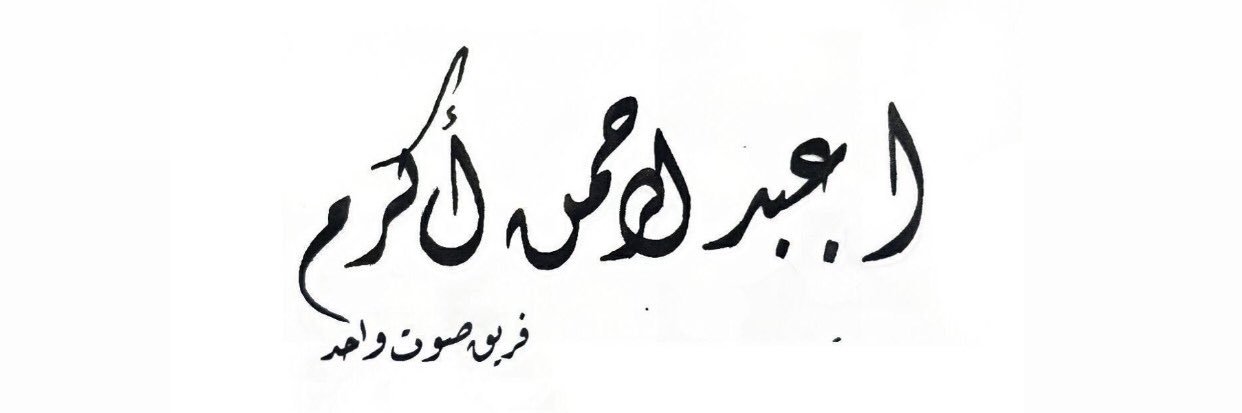 ا عبد الرحمن أكرم
فريق صوت واحد